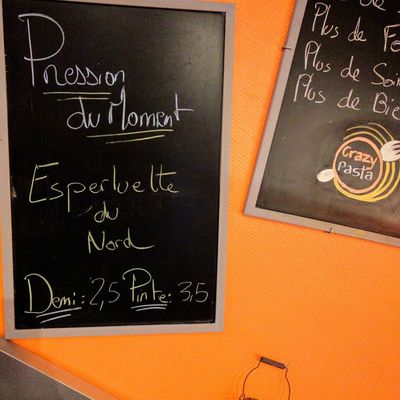 Pression
du Moment
Esperluette
du
Nord
Demi: 2,5 Pinte: 3,5
Plus de
Plus de Soi
Plus de Bi
Crazy
Pasta